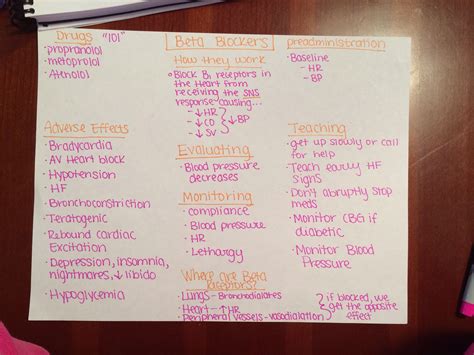 Drugs "101"
• propranolol
• metoprolol
• Atenolol
Beta Blockers
How they work
• Block B₁ receptors in
the Heart from
receiving the SNS
response causing...
- ↓HR
- ↓CO } ↓BP
- ↓SV
preadministration
• Baseline
- HR
- BP
Adverse Effects
• Bradycardia
• AV Heart block
• Hypotension
• HF
• Bronchoconstriction
• Teratogenic
• Rebound Cardiac
Excitation
• Depression, insomnia,
nightmares, ↓ libido
• Hypoglycemia
Evaluating
• Blood pressure
decreases
Monitoring
• compliance
• Blood pressure
• HR
• Lethargy
Where are Beta
Receptors?
• Lungs - Bronchodialates
• Heart - ↑HR
• Peripheral vessels - vasodialation
} if blocked, we
get the opposite
effect
Teaching
• get up slowly or call
for help
• Teach early HF
signs
• Don't abruptly stop
meds
• Monitor CBG if
diabetic
• Monitor Blood
Pressure